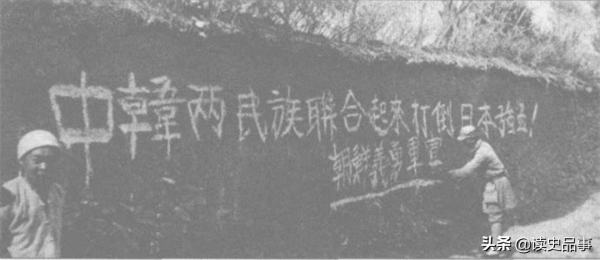 中韓两民族聯合起來打倒日本強盗!
朝鮮義勇軍宣
头条 @读史品事